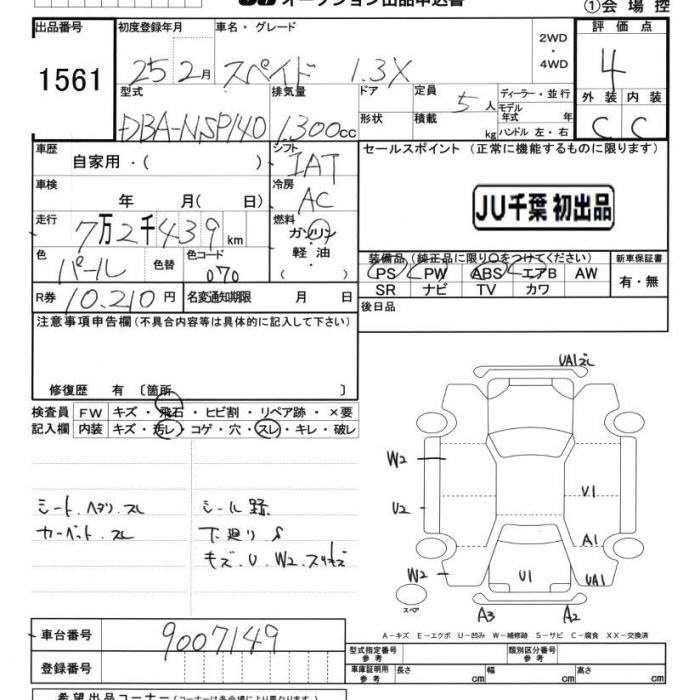 オークション出品申込書
①会場控
出品番号
1561
初度登録年月
25 2月
車名・グレード
スペイド 1.3X
2WD
・
4WD
評価点
4
外装 内装
C C
型式
DBA-NSP140
排気量
1,300cc
ドア
形状
定員
5人
積載
kg
ディーラー・並行
モデル
年式 年
ハンドル 左・右
車歴
自家用・( )
シフト
IAT
車検
年 月( 日)
冷房
AC
走行
7万2千439km
燃料
ガソリン
軽油
・
色
パール
色替
色コード
070
R券
10,210円
名変通知期限 月 日
セールスポイント (正常に機能するものに限ります)
JU千葉 初出品
装備品(純正品に限り○をつけてください)
PS PW ABS エアB AW
SR ナビ TV カワ
新車保証書
有・無
後日品
注意事項申告欄(不具合内容等は具体的に記入して下さい)
修復歴 有 〔箇所 〕
検査員
記入欄
FW キズ・飛石・ヒビ割・リペア跡・×要
内装 キズ・汚レ・コゲ・穴・スレ・キレ・破レ
シート.ヘタリ.スレ
カーペット.スレ
シール跡
下廻り.S
キズ.U.W2.スリキズ
UA1ズレ
W2
U2
W2
U1
A1
U1
UA1
スペア
A3
A2
A-キズ E-エクボ U-凹み W-補修跡 S-サビ C-腐食 XX-交換済
車台番号
9007149
登録番号
型式指定番号
参考
類別区分番号
参考
車庫証明用
参考
長さ cm 幅 cm 高さ cm
希望出品コーナー(コーナーは各会場により異なります)